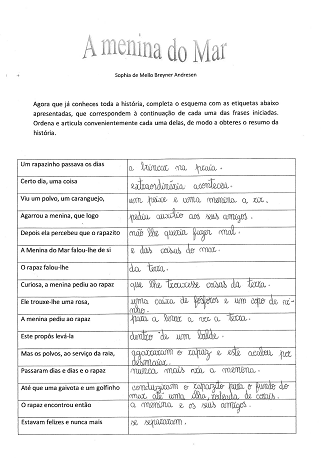 A menina do Mar
Sophia de Mello Breyner Andresen
Agora que já conheces toda a história, completa o esquema com as etiquetas abaixo
apresentadas, que correspondem à continuação de cada uma das frases iniciadas.
Ordena e articula convenientemente cada uma delas, de modo a obteres o resumo da
história.
Um rapazinho passava os dias
a brincar na praia.
Certo dia, uma coisa
extraordinária aconteceu.
Viu um polvo, um caranguejo,
um peixe e uma menina a rir.
Agarrou a menina, que logo
pediu auxílio aos seus amigos.
Depois ela percebeu que o rapazito
não lhe queria fazer mal.
A Menina do Mar falou-lhe de si
e das coisas do mar.
O rapaz falou-lhe
da terra.
Curiosa, a menina pediu ao rapaz
que lhe trouxesse coisas da terra.
Ele trouxe-lhe uma rosa,
uma caixa de fósforos e um copo de vi-
nho.
A menina pediu ao rapaz
para a levar a ver a terra.
Este propôs levá-la
dentro de um balde.
Mas os polvos, ao serviço da raia,
agarraram o rapaz e este acabou por
desmaiar.
Passaram dias e dias e o rapaz
nunca mais viu a menina.
Até que uma gaivota e um golfinho
conduziram o rapazito para o fundo do
mar até uma ilha, rodeada de corais.
O rapaz encontrou então
a menina e os seus amigos.
Estavam felizes e nunca mais
se separaram.